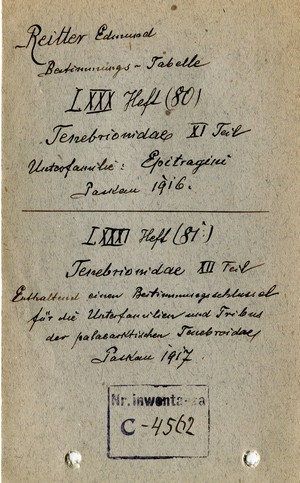 Reitter Edmund
Bestimmungs-Tabelle
LXXX Heft (80)
Tenebrionidae XI Teil
Unterfamilie: Epitragini
Paskau 1916.
LXXXI Heft (81)
Tenebrionidae XII Teil
Enthaltend einen Bestimmungsschlüssel
für die Unterfamilien und Tribus
der palaearktischen Tenebroidae
Paskau 1917.
Nr. inwentarza
C-4562